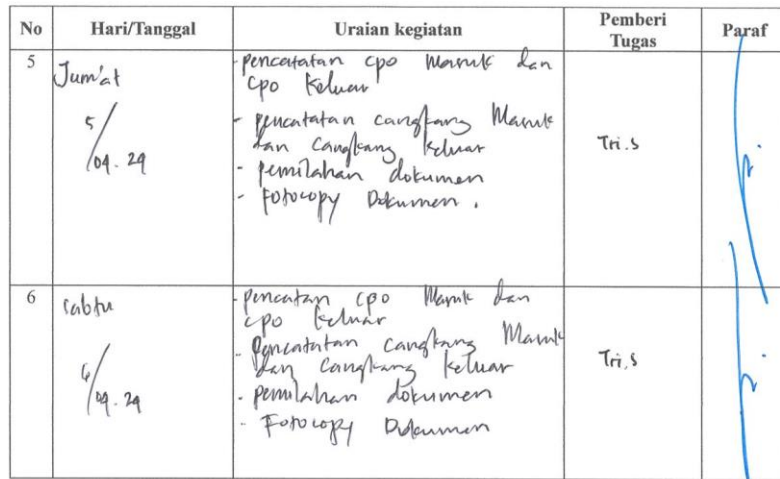 No Hari/Tanggal Uraian kegiatan Pemberi Tugas Paraf
5 Jum'at
5/04-24
- pencatatan cpo Masuk dan
cpo keluar
- pencatatan cangkang Masuk
dan cangkang keluar
- pemilahan dokumen
- Fotocopy Dokumen.
Tri.S
6 Sabtu
6/04-24
- pencatan cpo Masuk dan
cpo keluar
- pencatatan cangkang Masuk
dan cangkang keluar
- pemilahan dokumen
- Fotocopy Dokumen
Tri.S